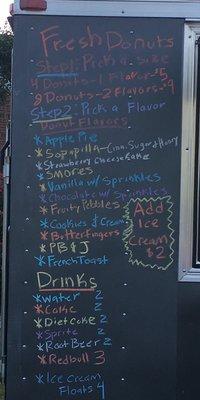 Fresh Donuts
Step 1: Pick a size
4 Donuts - 1 Flavor - $5
8 Donuts - 2 Flavors - $9
Step 2: Pick a Flavor
Donut Flavors
* Apple Pie
* Sopapilla - Cinn. Sugar & Honey
* Strawberry Cheesecake
* Smores
* Vanilla w/ Sprinkles
* Chocolate w/ Sprinkles
* Fruity Pebbles
* Cookies & Cream
* Butterfingers
* PB & J
* French Toast
Add
Ice
Cream
$2
Drinks
* Water 2
* Coke 2
* Diet Coke 2
* Sprite 2
* Root Beer 2
* Redbull 3
* Ice Cream
Floats 4